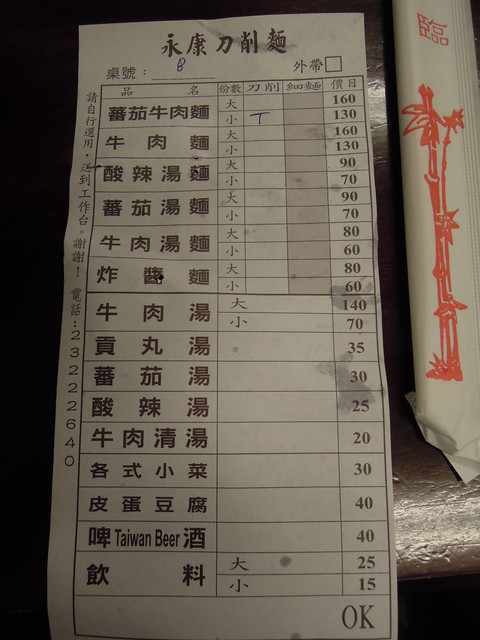 永康刀削麵
桌號：8 外帶□
品名 份數 刀削 細麵 價目
蕃茄牛肉麵 大 160
小 T 130
牛肉麵 大 160
小 130
酸辣湯麵 大 90
小 70
蕃茄湯麵 大 90
小 70
牛肉湯麵 大 80
小 60
炸醬麵 大 80
小 60
牛肉湯 大 140
小 70
貢丸湯 35
蕃茄湯 30
酸辣湯 25
牛肉清湯 20
各式小菜 30
皮蛋豆腐 40
啤Taiwan Beer酒 40
飲料 大 25
小 15
OK
請自行選用，送到工作台。謝謝！ 電話：23222640
臨